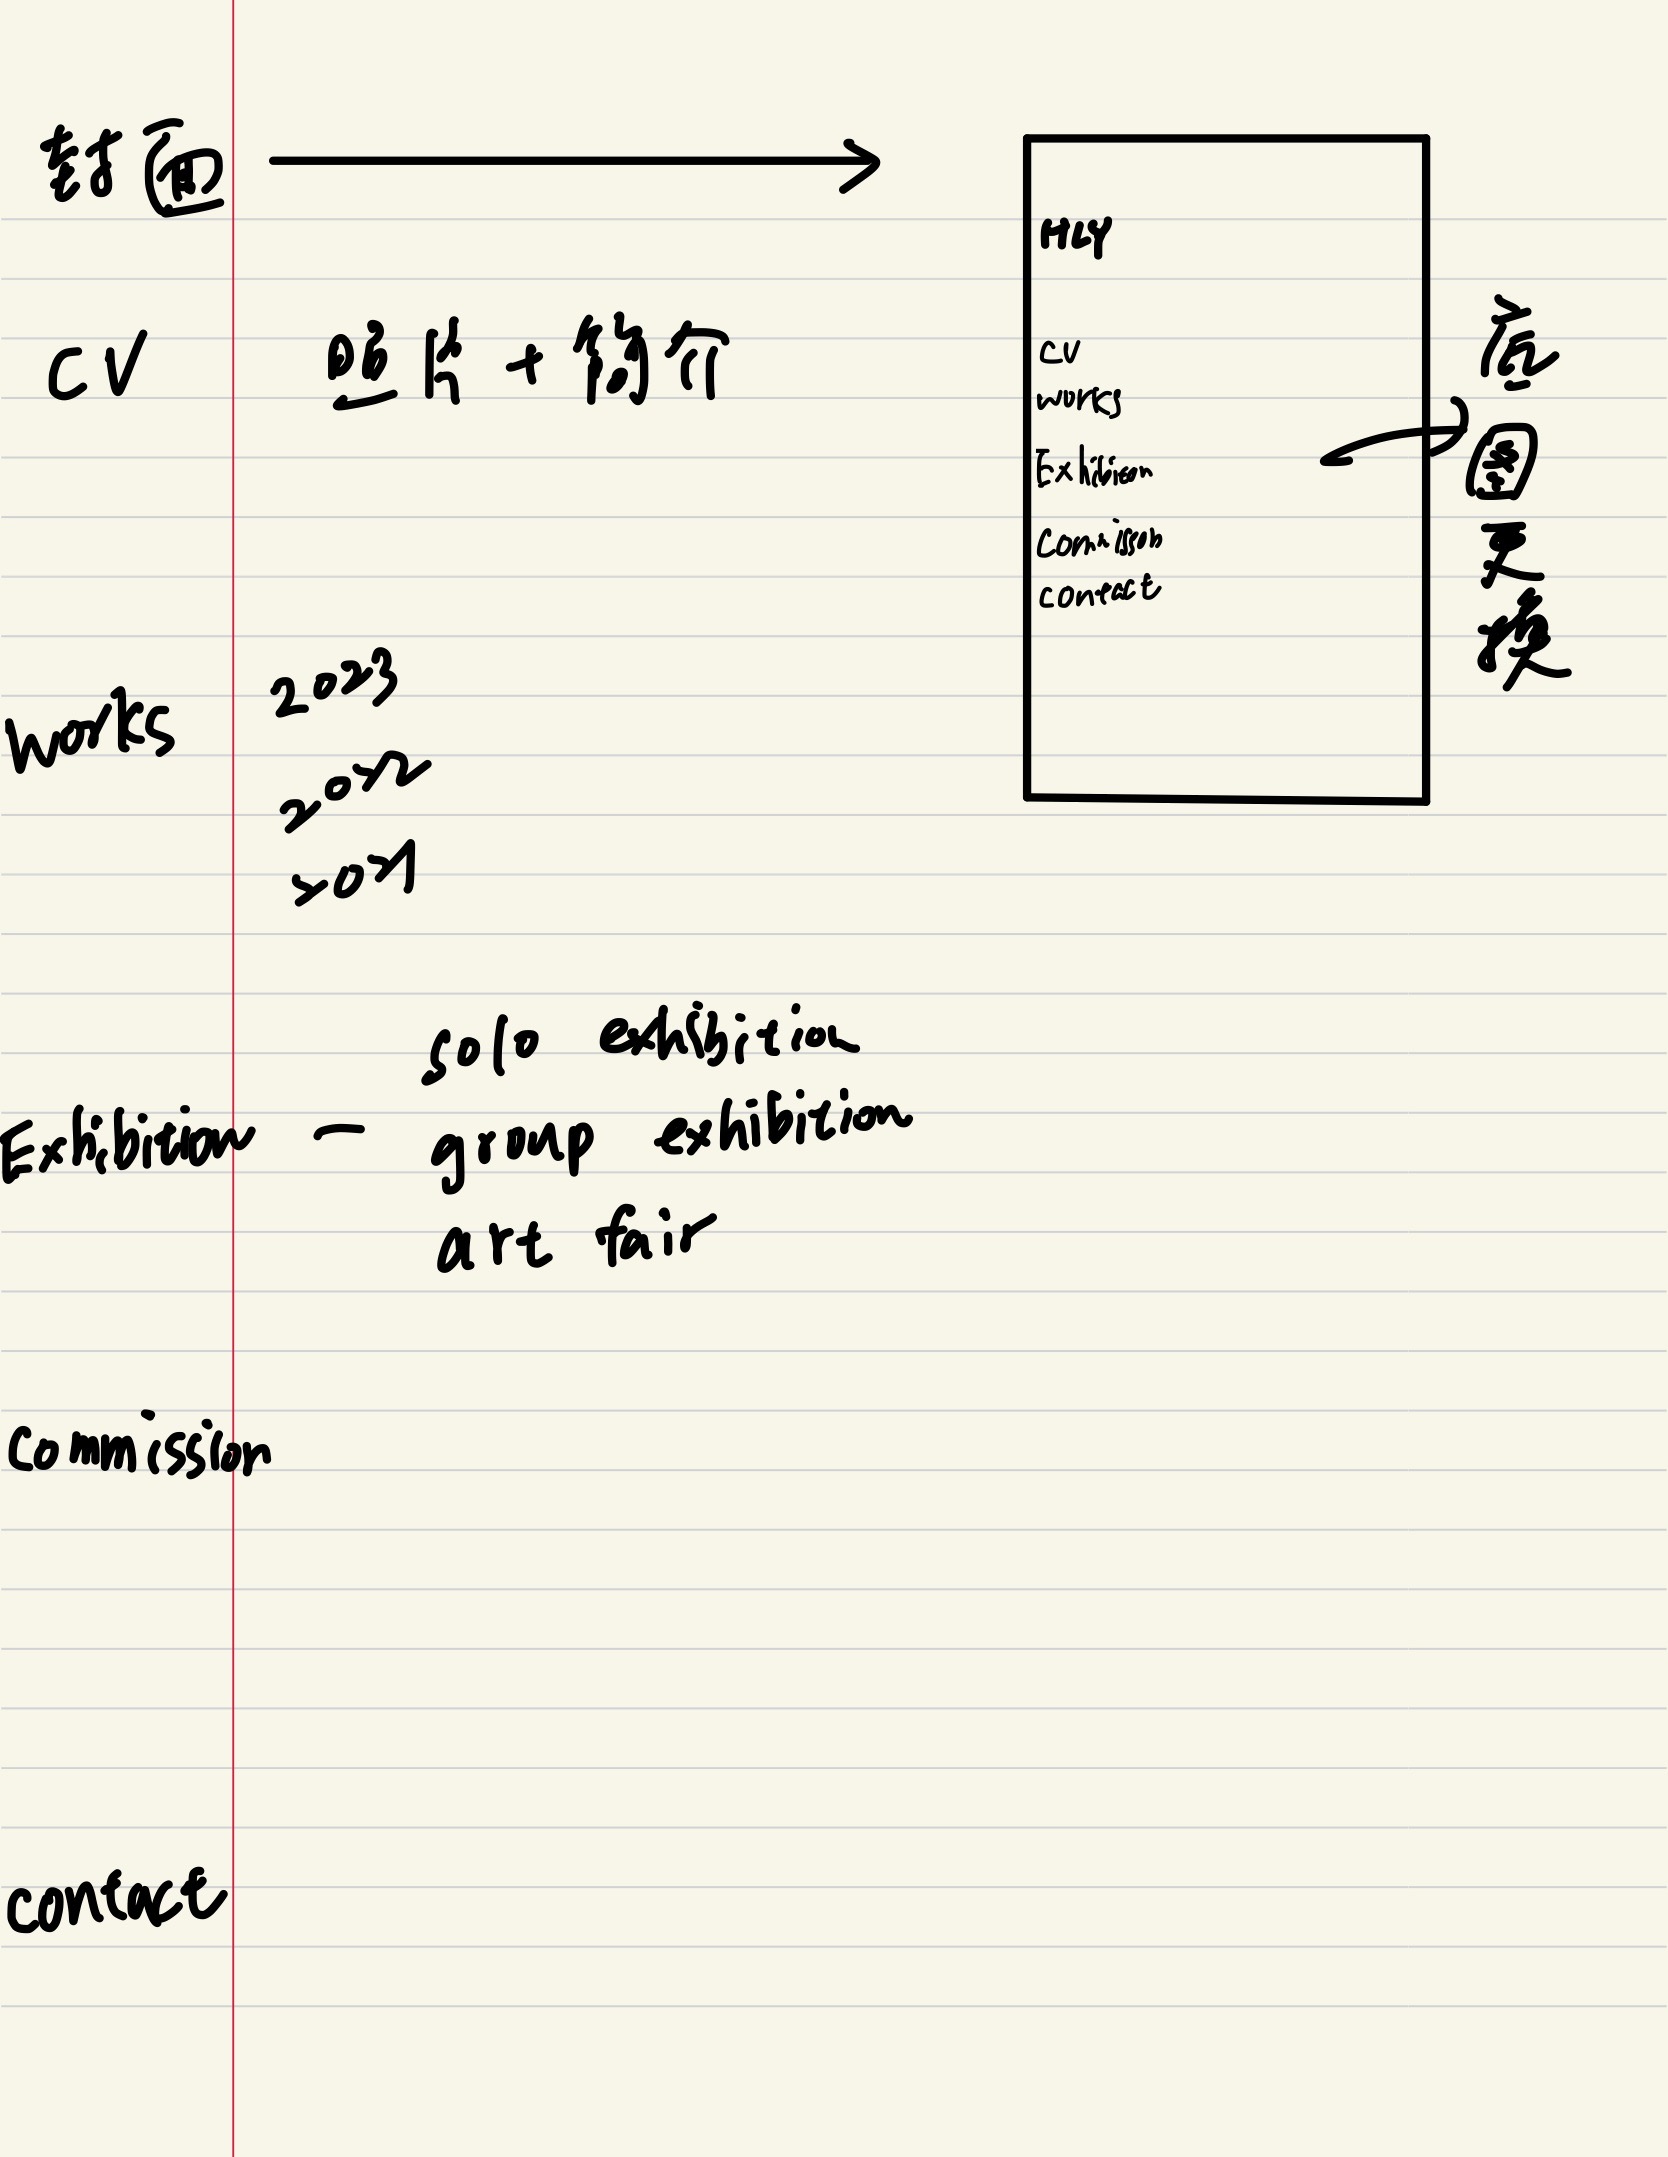 封面
HLY
CV
works
Exhibition
Commisson
contact
底
图
更
换
CV 照片 + 简介
works
2023
2022
2021
Exhibition —
solo exhibition
group exhibition
art fair
Commission
contact